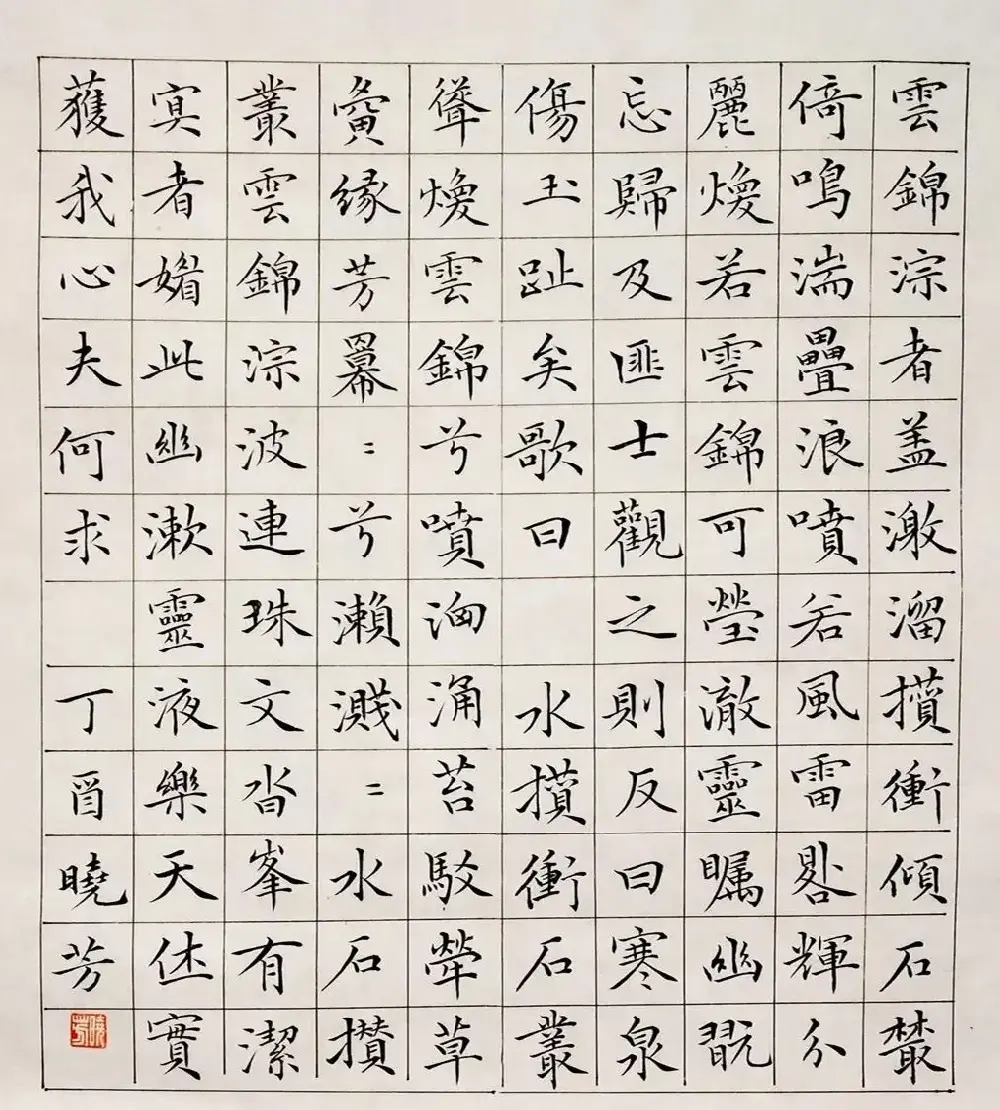 雲錦淙者盖激溜攢衝傾石藂
倚鳴湍疊浪噴若風雷輝分
麗煥若雲錦可瑩澈靈矚幽翫
忘歸及匪士觀之則反曰寒泉
傷玉趾矣歌曰 水攢衝石叢
聳煥雲錦兮噴洶涌苔駮犖草
夤緣芳冪〻兮瀨濺〻水石攢
叢雲錦淙波連珠文沓峯有潔
冥者媚此幽漱靈液樂天休實
獲我心夫何求 丁酉曉芳
曉芳